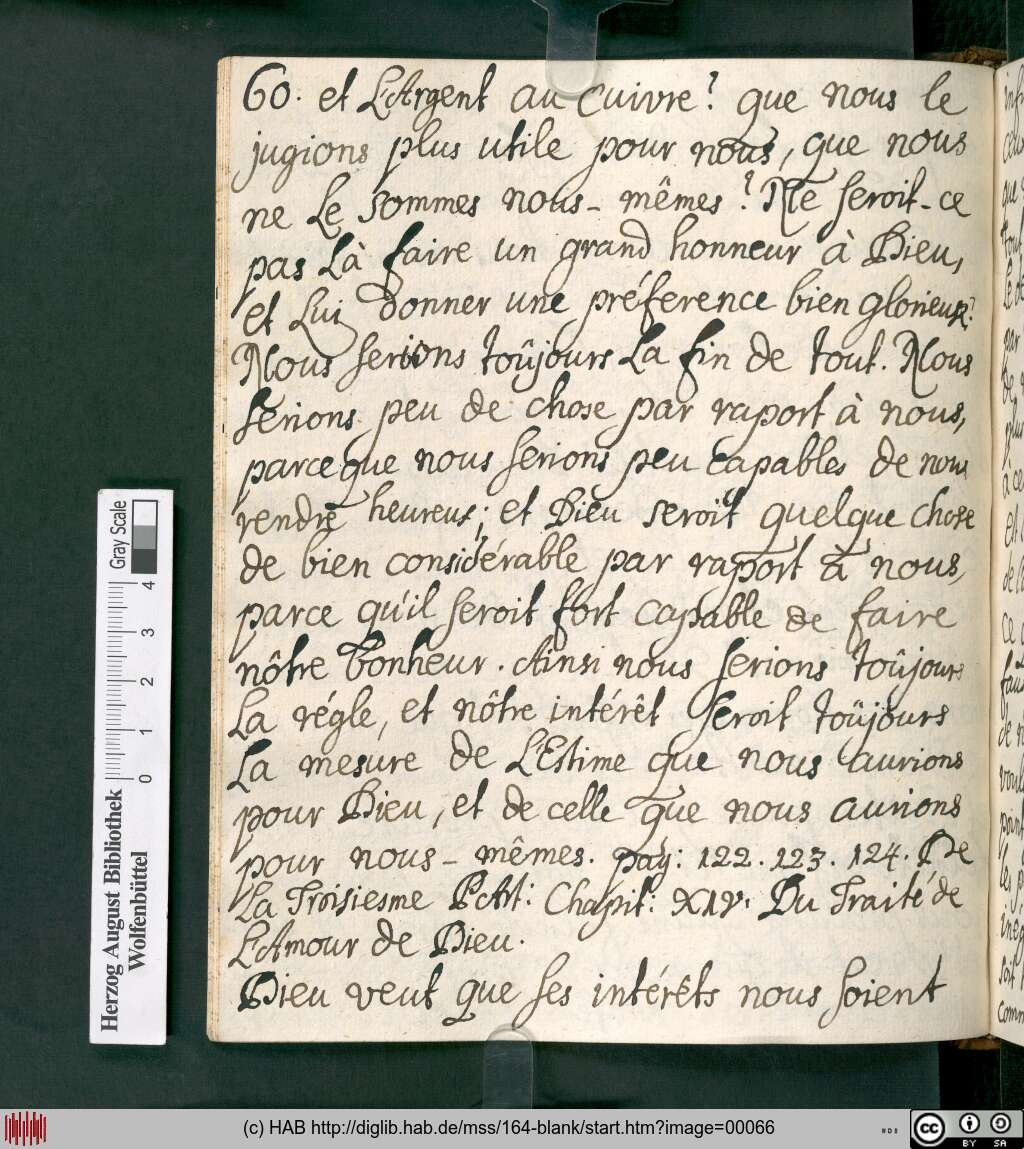 60. et L'Argent au Cuivre? que nous le
jugions plus utile pour nous, que nous
ne Le Sommes nous-mêmes? Ne seroit-ce
pas Là faire un grand honneur à Dieu,
et Lui donner une préference bien glorieuse?
Nous serions toûjours La fin de tout. Nous
serions peu de chose par raport à nous,
parceque nous serions peu capables de nous
rendre heureux; et Dieu seroit quelque chose
de bien considérable par raport à nous,
parce qu'il seroit fort capable de faire
nôtre bonheur. Ainsi nous serions toûjours
La régle, et nôtre intérêt seroit toûjours
La mesure de L'Estime que nous aurions
pour Dieu, et de celle que nous aurions
pour nous-mêmes. pag: 122. 123. 124. De
La Troisiesme PArt: Chapit: XIV. Du Traité de
L'Amour de Dieu.
Dieu veut que ses intérêts nous soient
Gray Scale
4 3 2 1 0
Herzog August Bibliothek
Wolfenbüttel
(c) HAB http://diglib.hab.de/mss/164-blank/start.htm?image=00066
cc BY SA